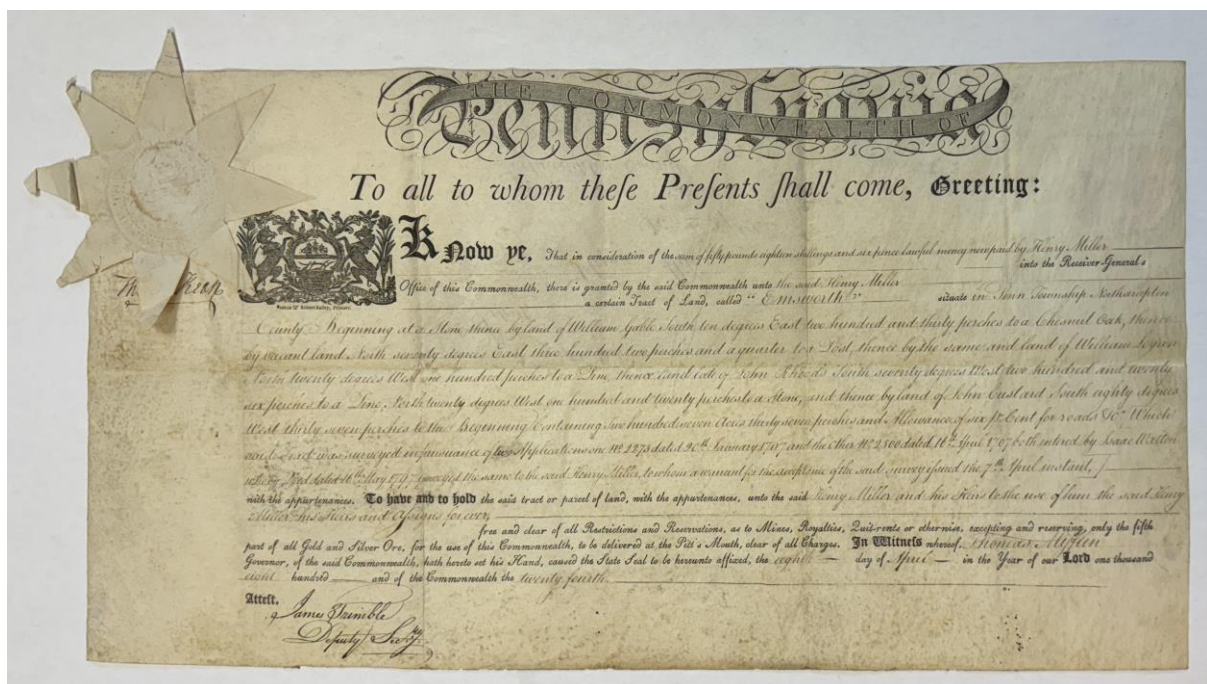 THE COMMONWEALTH OF
Pennsylvania
To all to whom theſe Preſents ſhall come, Greeting:
Know ye, That in consideration of the sum of fifty pounds eighteen shillings and six pence lawful money now paid by Henry Miller
into the Receiver-General's
Office of this Commonwealth, there is granted by the said Commonwealth unto the said Henry Miller
a certain Tract of Land, called "Emsworth" situate in Penn Township Northampton
County Beginning at a Stone thence by land of William Gable South ten degrees East two hundred and thirty perches to a Chesnut Oak, thence
by vacant land North seventy degrees East three hundred two perches and a quarter to a Post, thence by the same and land of William
North twenty degrees West one hundred perches to a Pine thence land late of John Rhoads South seventy degrees West two hundred and twenty
six perches to a Pine, North twenty degrees West one hundred and twenty perches to a Stone, and thence by land of John Custard South eighty degrees
West thirty seven perches to the Beginning Containing two hundred seven Acres thirty seven perches and Allowance of six pr Cent for roads &c Which
said tract was surveyed in pursuance of two Applications one No 2273 dated January 1767 and the other No 2500 dated 16th April 1767 both entered by Isaac
who by Deed dated 16th May 1797 conveyed the same to the said Henry Miller, to whom a warrant for the acceptance of the said survey issued the 7th April instant,
with the appurtenances. To have and to hold the said tract or parcel of land, with the appurtenances, unto the said Henry Miller and his Heirs to the use of him the said Henry
Miller his Heirs and Assigns forever,
free and clear of all Restrictions and Reservations, as to Mines, Royalties, Quit-rents or otherwise, excepting and reserving, only the fifth
part of all Gold and Silver Ore, for the use of this Commonwealth, to be delivered at the Pitt's Mouth, clear of all Charges. In Witness whereof, Thomas Mifflin
Governor, of the said Commonwealth, hath hereto set his Hand, caused the State Seal to be hereunto affixed, the eight day of April in the Year of our Lord one thousand
eight hundred and of the Commonwealth the twenty fourth.
Attest.
James Trimble
Deputy Secry